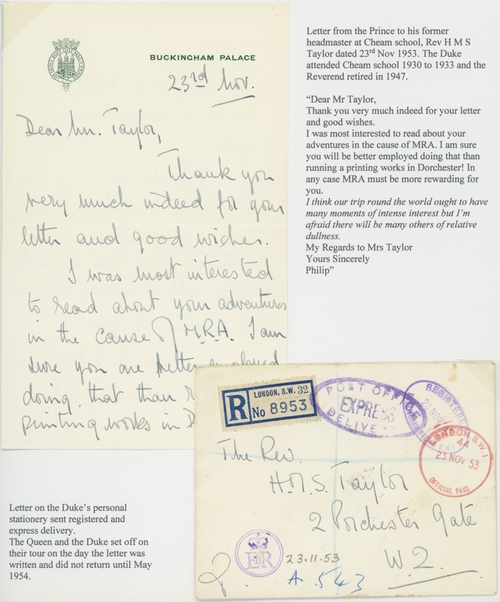 BUCKINGHAM PALACE
23rd Nov.
Dear Mr. Taylor,
Thank you
very much indeed for your
letter and good wishes.
I was most interested
to read about your adventures
in the cause of M.R.A. I am
sure you are better employed
doing that than
printing works in D
Letter from the Prince to his former
headmaster at Cheam school, Rev H M S
Taylor dated 23rd Nov 1953. The Duke
attended Cheam school 1930 to 1933 and the
Reverend retired in 1947.
“Dear Mr Taylor,
Thank you very much indeed for your letter
and good wishes.
I was most interested to read about your
adventures in the cause of MRA. I am sure
you will be better employed doing that than
running a printing works in Dorchester! In
any case MRA must be more rewarding for
you.
I think our trip round the world ought to have
many moments of intense interest but I’m
afraid there will be many others of relative
dullness.
My Regards to Mrs Taylor
Yours Sincerely
Philip”
R
LONDON, S.W. 32
No 8953
POST OFFICE
EXPRESS
DELIVERY
REGISTERED
LONDON S.W.1
44
23 NOV 53
OFFICIAL PAID
The Rev.
H.M.S. Taylor
2 Porchester Gate
W.2.
EIIR
23.11.53
A 543
Letter on the Duke’s personal
stationery sent registered and
express delivery.
The Queen and the Duke set off on
their tour on the day the letter was
written and did not return until May
1954.